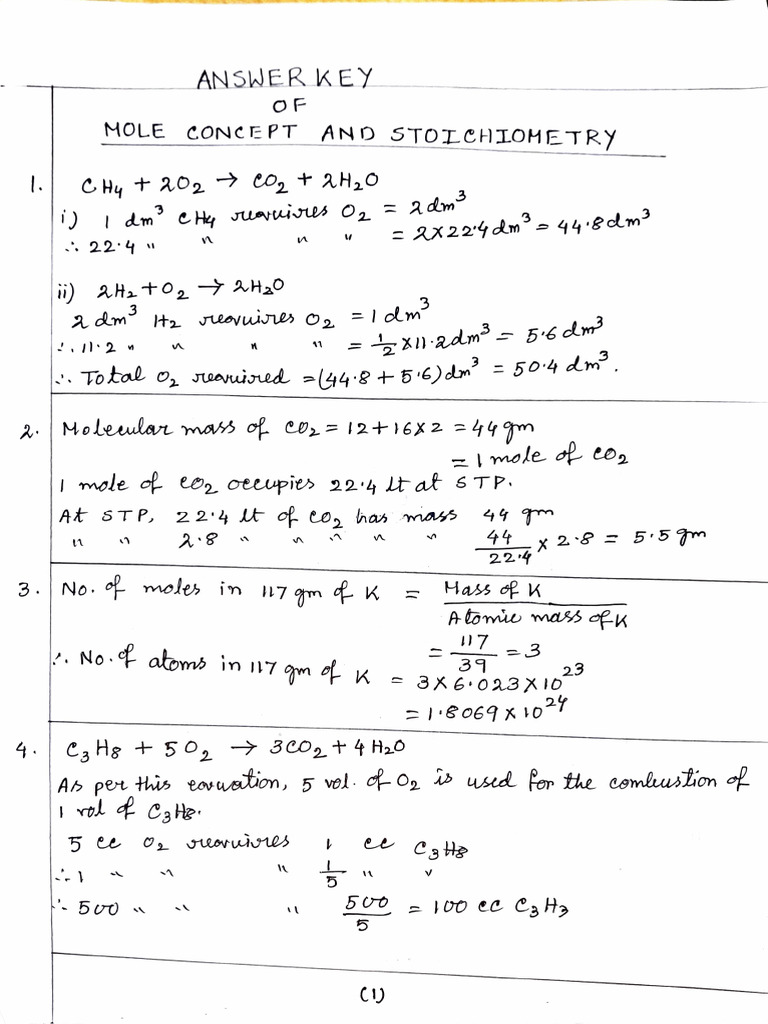 ANSWER KEY
OF
MOLE CONCEPT AND STOICHIOMETRY
1. CH₄ + 2O₂ → CO₂ + 2H₂O
i) 1 dm³ CH₄ requires O₂ = 2 dm³
∴ 22.4 " " " " = 2×22.4 dm³ = 44.8 dm³
ii) 2H₂ + O₂ → 2H₂O
2 dm³ H₂ requires O₂ = 1 dm³
∴ 11.2 " " " " = 1/2 × 11.2 dm³ = 5.6 dm³
∴ Total O₂ required = (44.8 + 5.6) dm³ = 50.4 dm³.
2. Molecular mass of CO₂ = 12 + 16×2 = 44 gm
= 1 mole of CO₂
1 mole of CO₂ occupies 22.4 lt at STP.
At STP, 22.4 lt of CO₂ has mass 44 gm
" " 2.8 " " " " " 44/22.4 × 2.8 = 5.5 gm
3. No. of moles in 117 gm of K = Mass of K / Atomic mass of K
= 117/39 = 3
∴ No. of atoms in 117 gm of K = 3 × 6.023 × 10²³
= 1.8069 × 10²⁴
4. C₃H₈ + 5O₂ → 3CO₂ + 4H₂O
As per this equation, 5 vol. of O₂ is used for the combustion of
1 vol of C₃H₈.
5 cc O₂ requires 1 cc C₃H₈
∴ 1 " " " 1/5 " "
∴ 500 " " " 500/5 = 100 cc C₃H₃
(1)